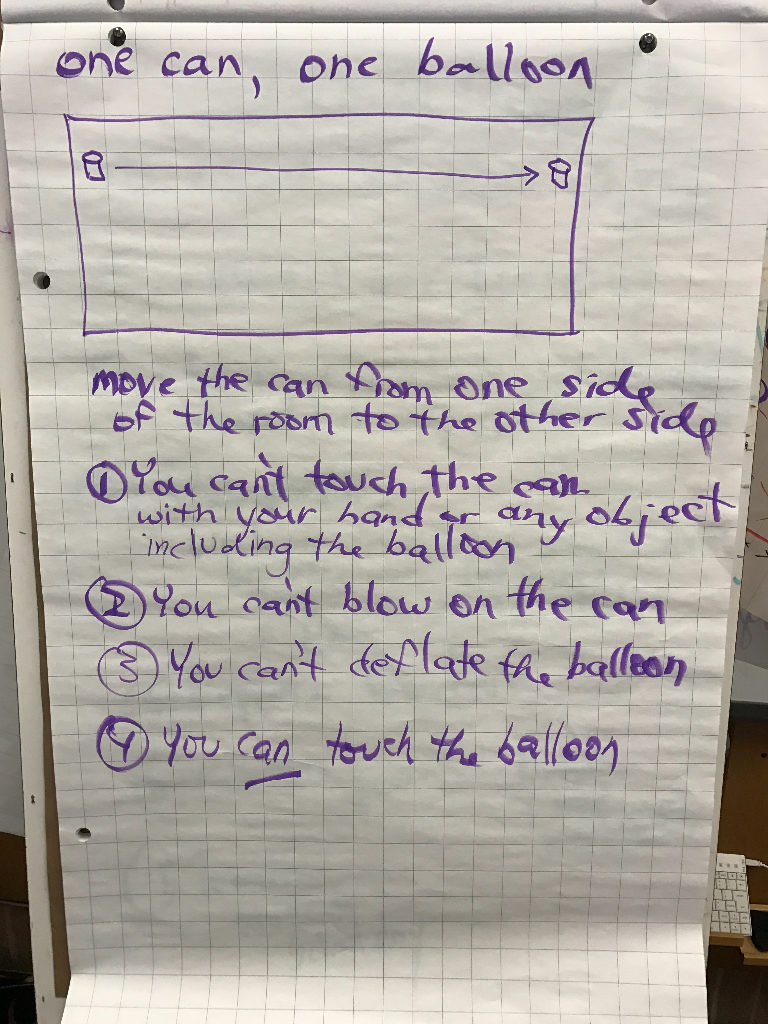 one can, one balloon
move the can from one side
of the room to the other side
① You can't touch the can
with your hand or any object
including the balloon
② You can't blow on the can
③ You can't deflate the balloon
④ You can touch the balloon